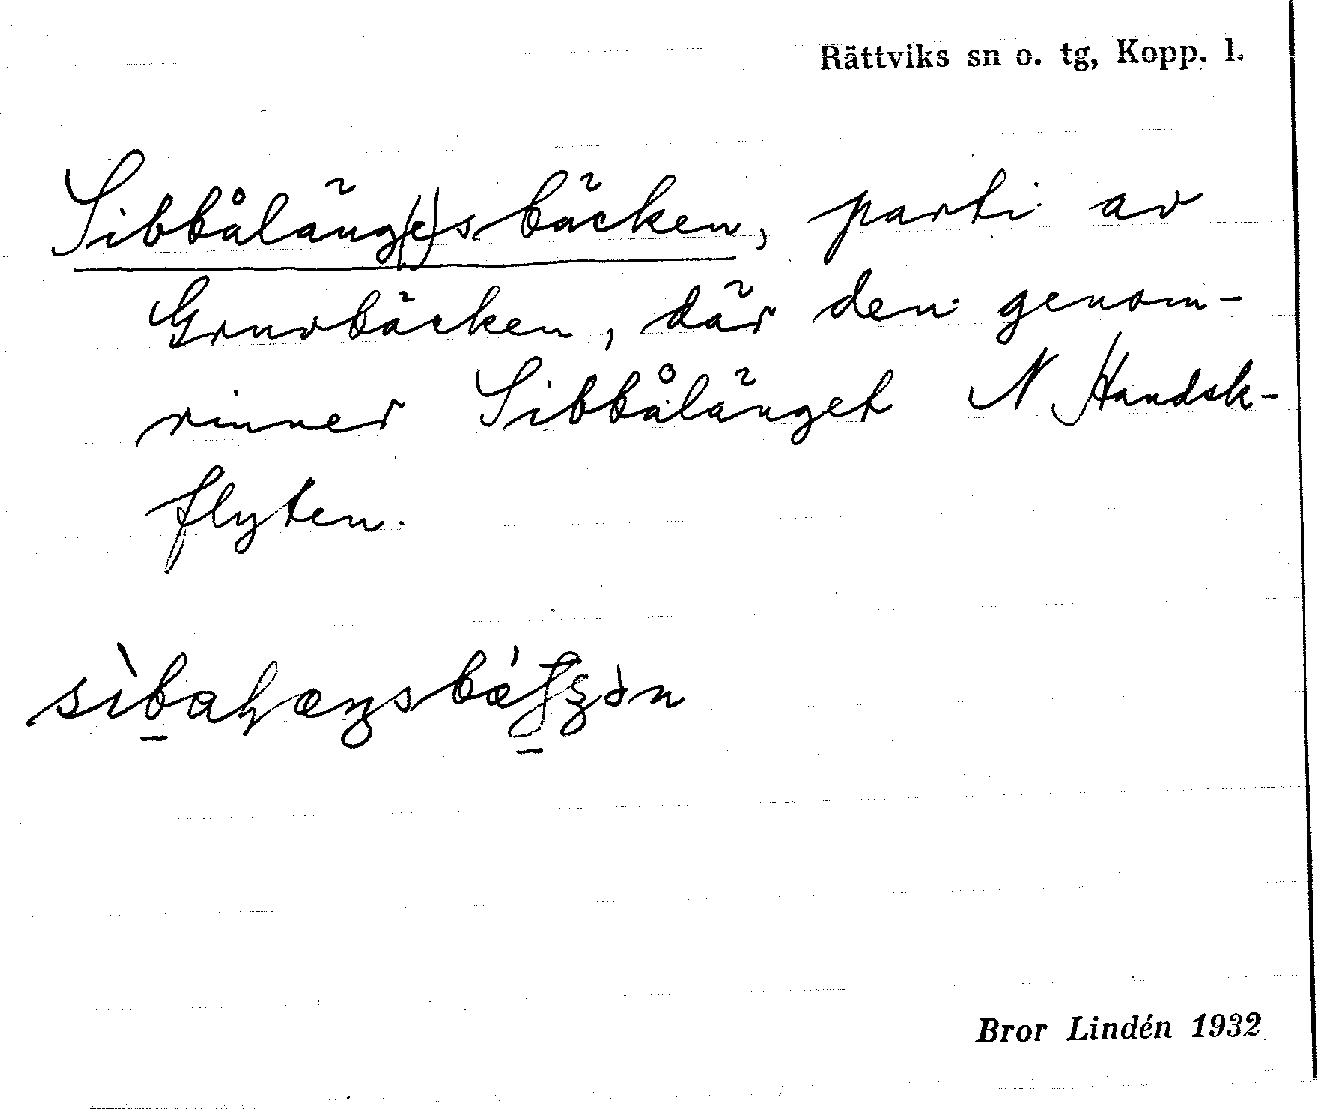 Rättviks sn o. tg, Kopp. l.
Sibbåläng(e)sbäcken, parti av
Gruvbäcken, där den genom-
rinner Sibbålänget N Handsk-
flyten.
Bror Lindén 1932